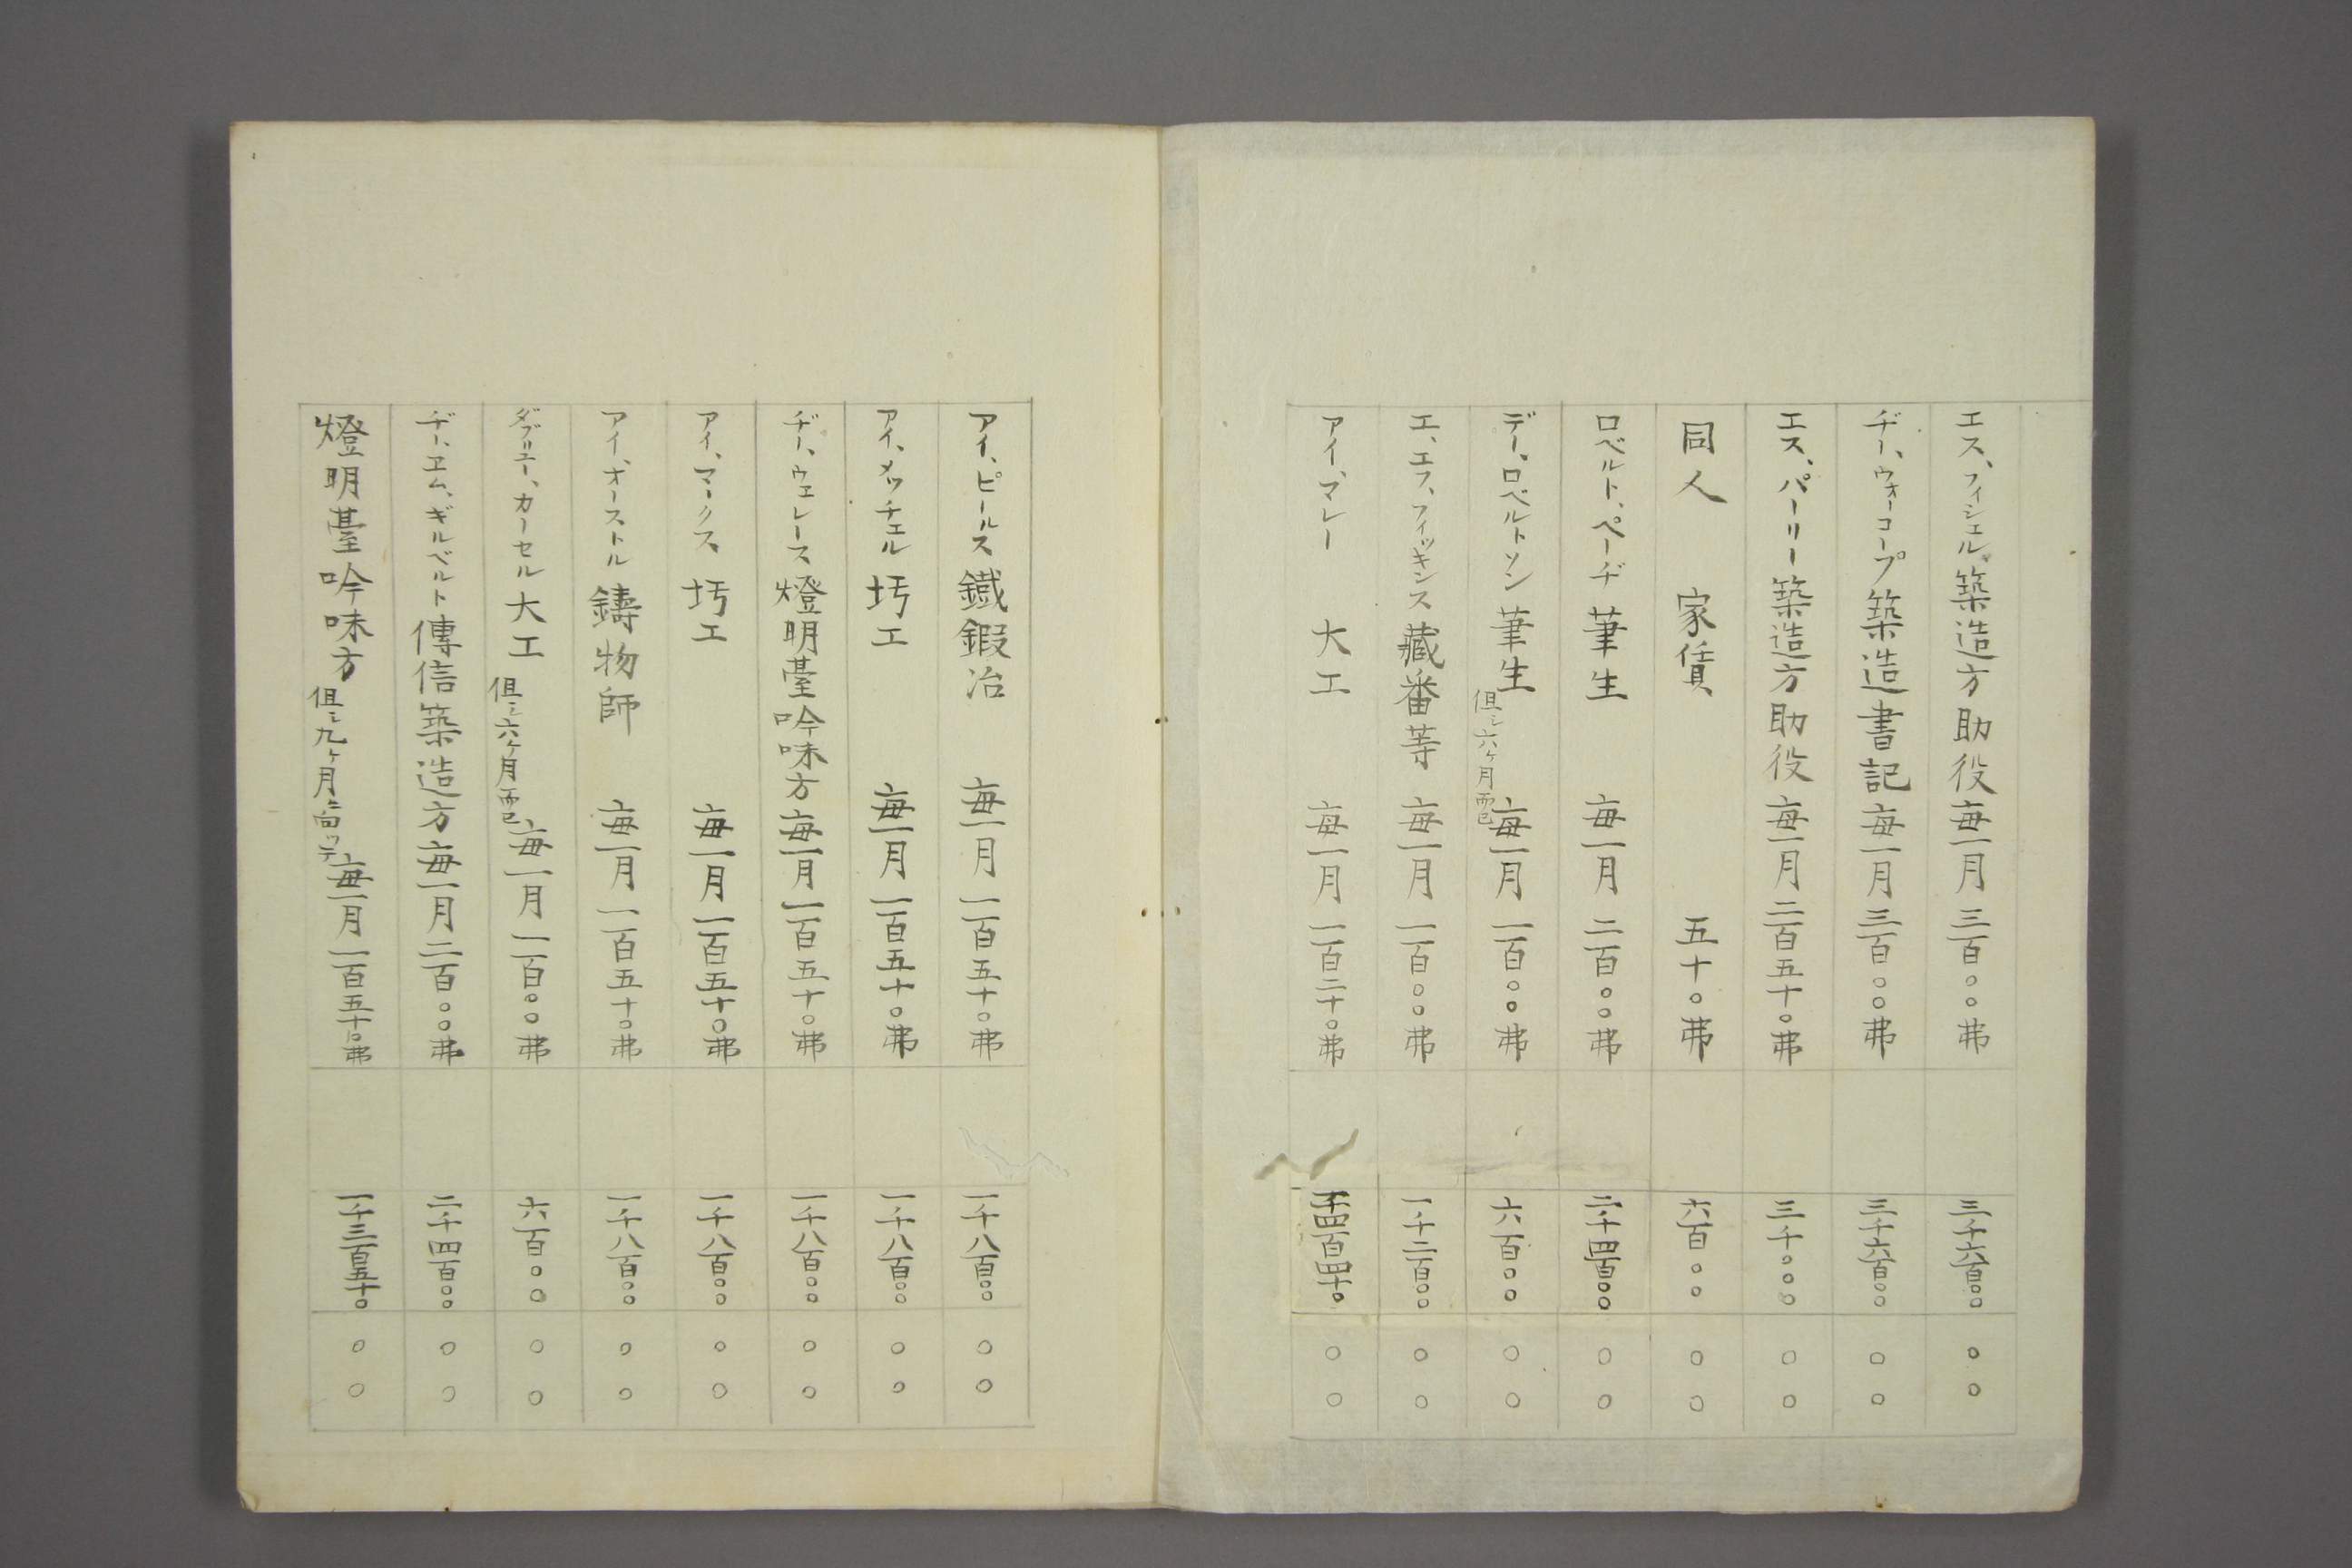 エス、フィシェル 築造方助役 毎一月 三百〇〇弗 三千六百〇〇 〇〇
ヂー、ウォーコープ 築造書記 毎一月 三百〇〇弗 三千六百〇〇 〇〇
エス、パーリー 築造方助役 毎一月 二百五十〇弗 三千〇〇〇 〇〇
同人 家賃 五十〇弗 六百〇〇 〇〇
ロベルト、ページ 筆生 毎一月 二百〇〇弗 二千四百〇〇 〇〇
デー、ロベルトソン 筆生 但シ六ケ月而已 毎一月 一百〇〇弗 六百〇〇 〇〇
エ、エフ、フィッキンス 藏番等 毎一月 一百〇〇弗 一千二百〇〇 〇〇
アイ、マレー 大工 毎一月 一百二十〇弗 一千四百四十〇 〇〇
アイ、ピールス 鐵鍜冶 毎一月 一百五十〇弗 一千八百〇〇 〇〇
アイ、メッチェル 圬工 毎一月 一百五十〇弗 一千八百〇〇 〇〇
ヂー、ウェレース 燈明臺吟味方 毎一月 一百五十〇弗 一千八百〇〇 〇〇
アイ、マークス 圬工 毎一月 一百五十〇弗 一千八百〇〇 〇〇
アイ、オーストル 鑄物師 毎一月 一百五十〇弗 一千八百〇〇 〇〇
ダブリユー、カーセル 大工 但シ六ケ月而已 毎一月 一百〇〇弗 六百〇〇 〇〇
ヂー、ヱム、ギルベルト 傳信築造方 毎一月 二百〇〇弗 二千四百〇〇 〇〇
燈明臺吟味方 但シ九ケ月ニ向ツテ 毎一月 一百五十〇弗 一千三百五十〇 〇〇